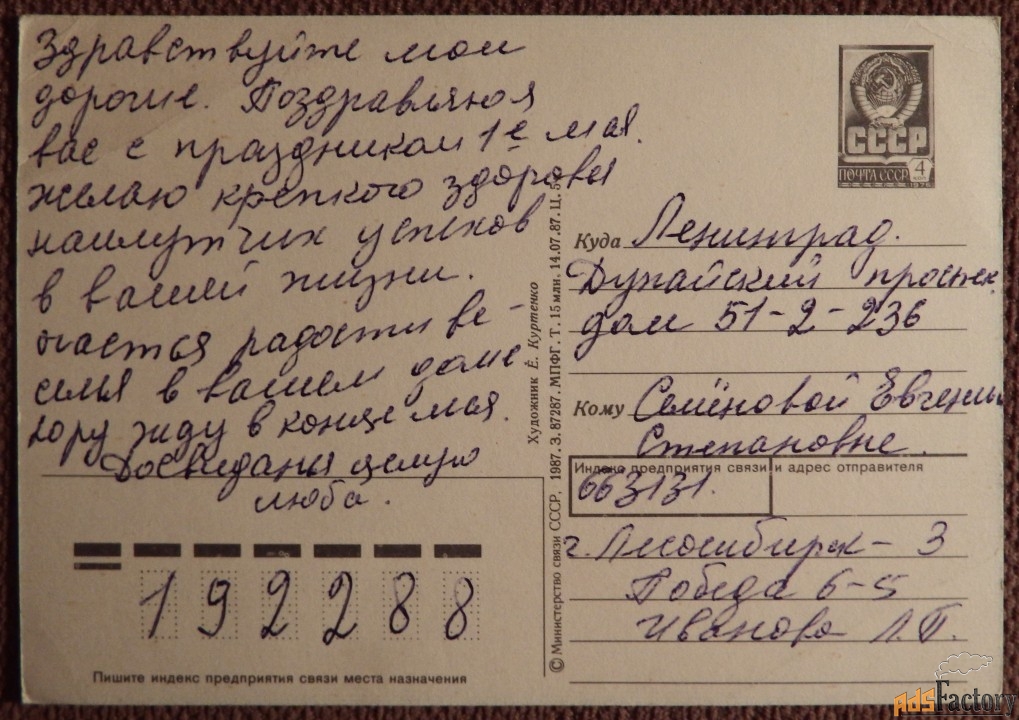 Здравствуйте мои
дорогие. Поздравляюя
вас с праздником 1е мая.
желаю крепкого здоровья
наилутчих успехов
в вашей жизни.
щастья радости ве-
селья в вашем доме
Юру жду в конце мая.
Досвиданья целую
люба.
СССР
ПОЧТА СССР 4 коп
1976
Куда Ленинград.
Дунайский проспек.
дом 51-2-236
Кому Семёновой Евгении
Степановне.
Индекс предприятия связи и адрес отправителя
663131.
г. Лесосибирск-3
Победа 6-5
Иванова Л.П.
192288
Пишите индекс предприятия связи места назначения
© Министерство связи СССР, 1987. З. 87287. МПФГ. Т. 15 млн. 14.07.87. Ц. 5 к.
Художник Е. Куртенко
AdsFactory